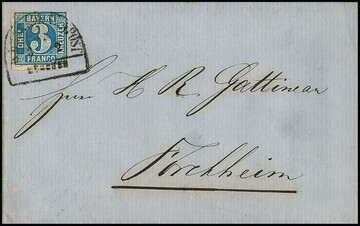 BAYERN
DREI 3 KREUZER
FRANCO
POST
H R Gattineau
Forchheim